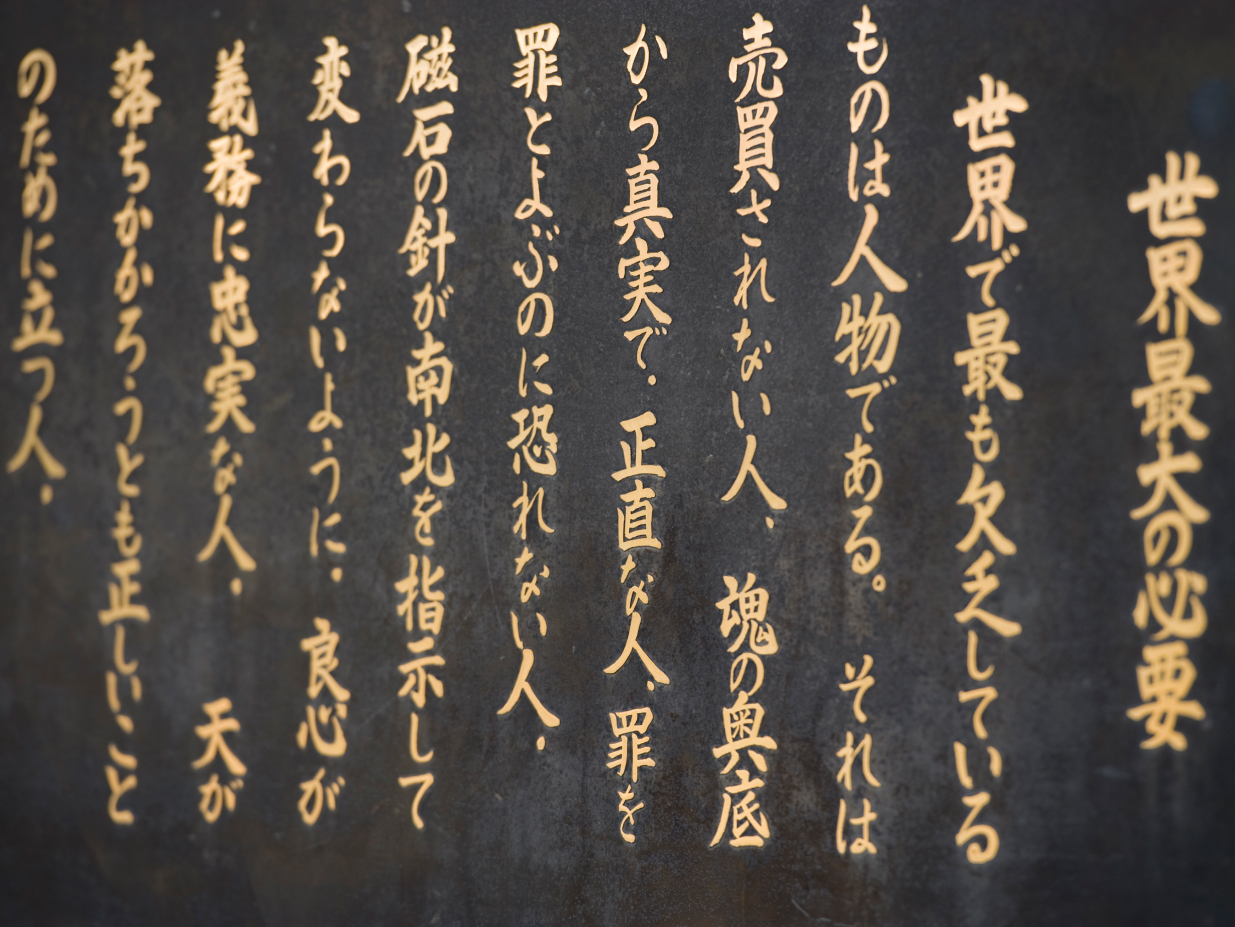 世界最大の必要
世界で最も欠乏している
ものは人物である。　それは
売買されない人．　魂の奥底
から真実で．　正直な人．罪を
罪とよぶのに恐れない人．
磁石の針が南北を指示して
変わらないように．　良心が
義務に忠実な人．　天が
落ちかかろうとも正しいこと
のために立つ人．